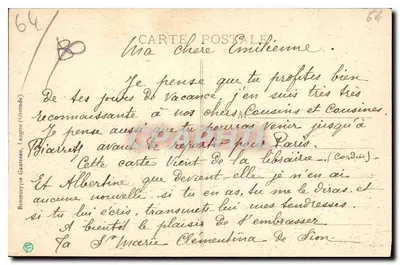 64
80
64
CARTE POSTALE
Ma chere Emilienne.
Je pense que tu profites bien
De tes jours de vacance, j'en suis très très
reconnaissante à nos chers Cousins et Cousines.
Je pense aussi que tu pourras venir jusqu'à
Biarritz avant de repartir pour Paris.
Cette carte Vient de la libraire
Et Albertine que devient elle je n'en ai
aucune nouvelle si tu en as, tu me le diras et
si tu lui écris, transmets lui mes tendresses.
A bientot le plaisir de t'embrasser
Ta Sr Marie Clémentina De Sion
Langon (Gironde)